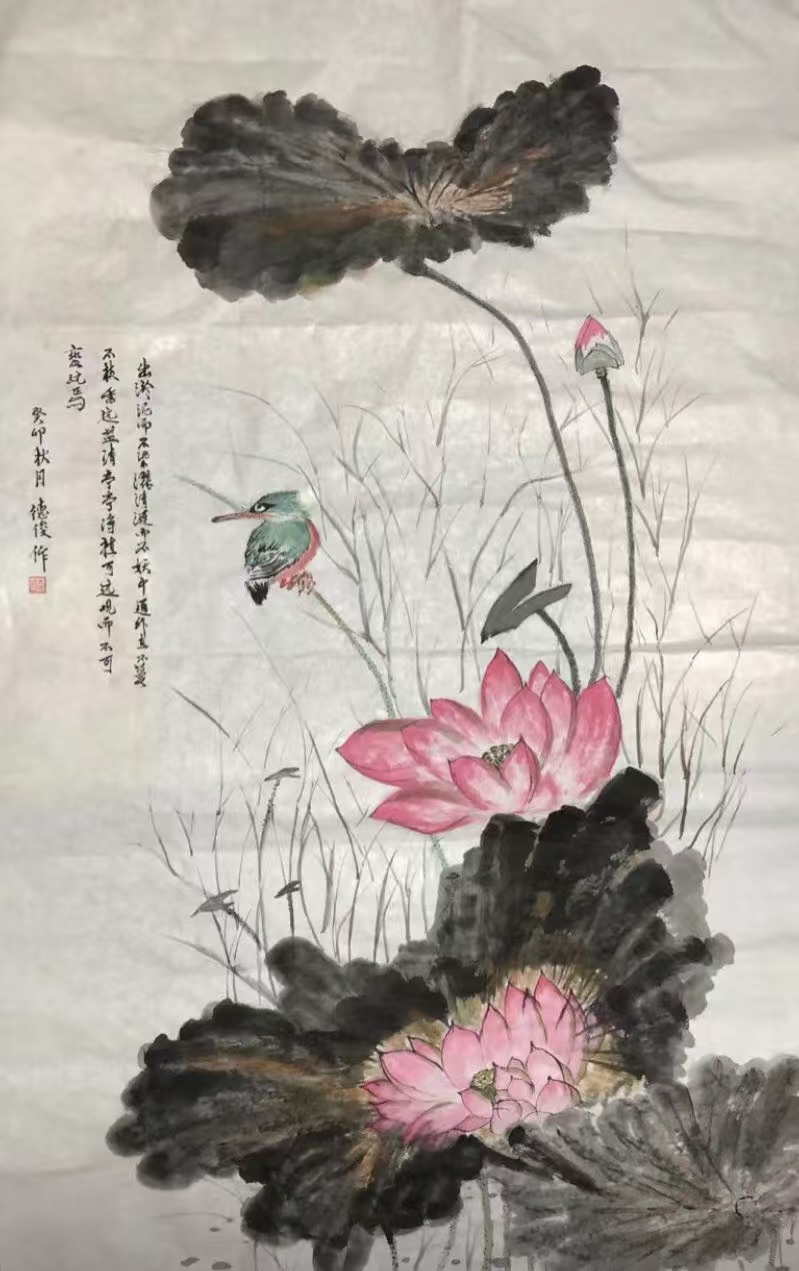 出淤泥而不染濯清涟而不妖中通外直不蔓
不枝香远益清亭亭净植可远观而不可
亵玩焉
癸卯秋月 德俊作